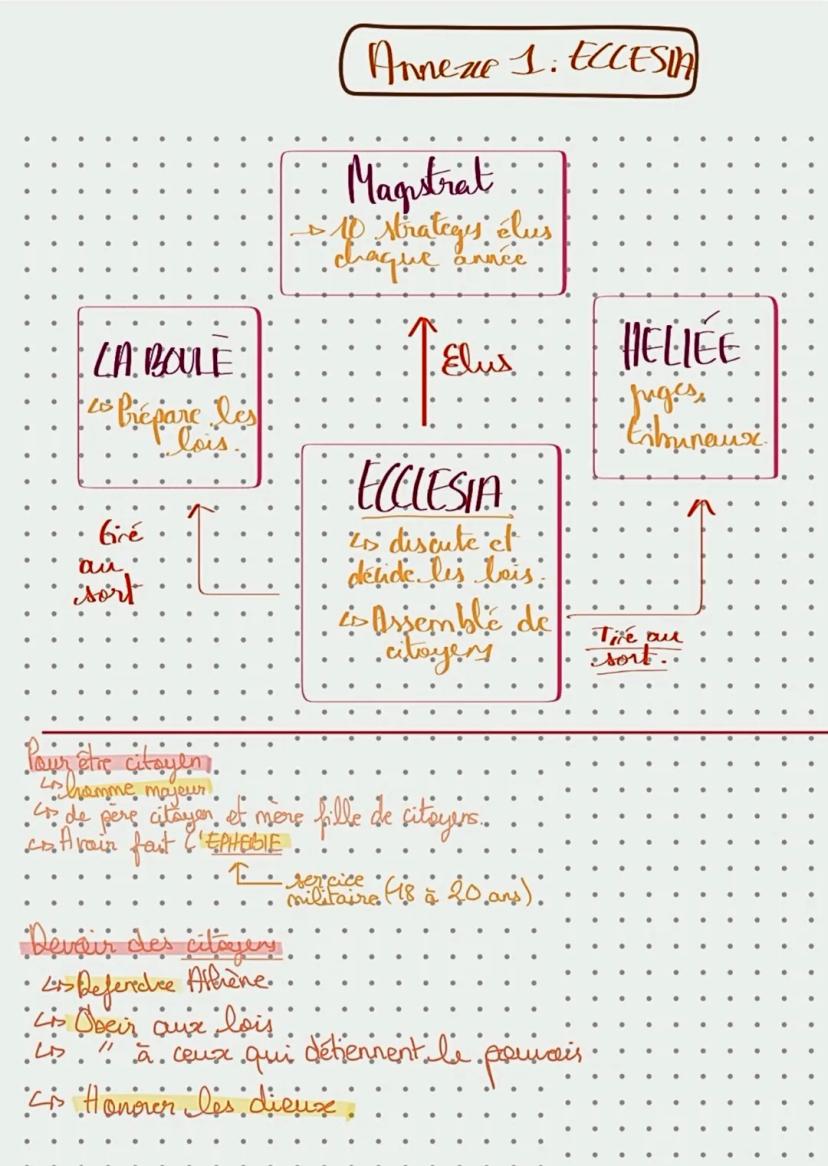 Annexe 1: ECCLESIA
Magistrat
→ 10 strateges élus
chaque année
LA BOULÈ
↳ Prépare les
lois.
Elus
HELIÉE
juges,
tribunaux.
ECCLESIA
↳ discute et
décide les lois.
↳ Assemblé de
citoyens
tiré
au
sort
Tiré au
sort.
Pour être citoyen
↳ homme majeur
↳ de père citoyen et mère fille de citoyens.
↳ Avoir fait l'EPHEBIE
service
militaire (18 à 20 ans)
Devoir des citoyens
↳ Defendre Athène
↳ Obeir aux lois
↳ " à ceux qui détiennent le pouvoir
↳ Honorer les dieux.